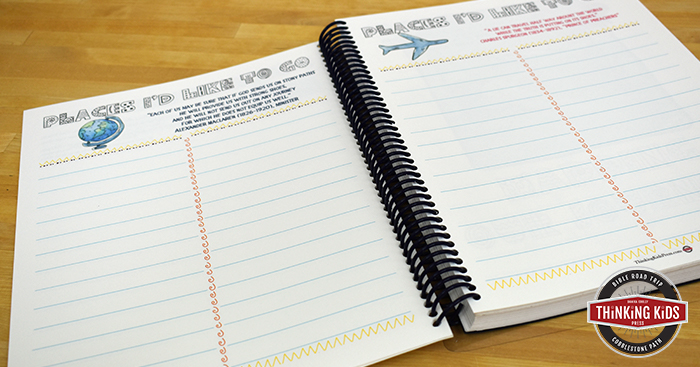 PLACES I'D LIKE TO GO
"EACH OF US MAY BE SURE THAT IF GOD SENDS US ON STONY PATHS
HE WILL PROVIDE US WITH STRONG SHOES,
AND HE WILL NOT SEND US OUT ON ANY JOURNEY
FOR WHICH HE DOES NOT EQUIP US WELL."
ALEXANDER MACLAREN (1826-1910), MINISTER
PLACES I'D LIKE TO GO
"A LIE CAN TRAVEL HALF WAY AROUND THE WORLD
WHILE THE TRUTH IS PUTTING ON ITS SHOES."
CHARLES SPURGEON (1834-1892), "PRINCE OF PREACHERS"
ThinkingKidsPress.com
BIBLE ROAD TRIP
THiNKiNG KiDS
PRESS
COBBLESTONE PATH